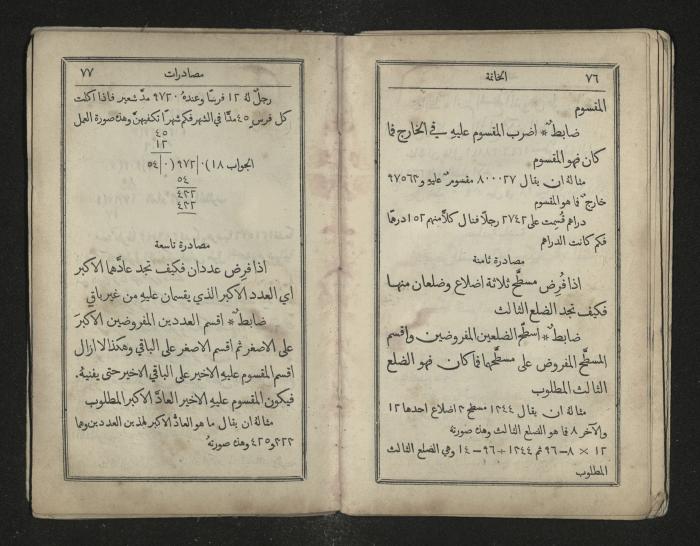 ٧٦ الخاتمة
المقسوم
ضابطٌ * اضرب المقسوم عليه في الخارج فما
كان فهو المقسوم
مثالهُ ان يقال ٨٠٠٠٢٧ مقسومٌ عليهِ و٩٧٥٦٢
خارجٌ فما هو المقسوم
دراهم قُسِمت على ٢٧٤٢ رجلاً فنال كلٌّ منهم ١٥٢ درهمًا
فكم كانت الدراهم
مصادرة ثامنة
اذا فُرِض مسطَّح ثلاثة اضلاع وضلعان منهـا
فكيف تجد الضلع الثالث
ضابطٌ * سطِّح الضلعين المفروضين واقسم
المسطَّح المفروض على مسطَّحهما فما كان فهو الضلع
الثالث المطلوب
مثالهُ ان يقال ١٢٤٤ مسطَّح ٣ اضلاع احدها ١٢
والآخر ٨ فما هو الضلع الثالث وهذه صورتهُ
١٢ × ٨ = ٩٦ ثم ١٢٤٤ ÷ ٩٦ = ١٤ وهي الضلع الثالث
المطلوب
مصادرات ٧٧
رجلٌ لهُ ١٢ فرسًا وعندهُ ٩٧٢٠ مدَّ شعير فاذا اكلت
كل فرسٍ ٤٥ مدًّا في الشهر فكم شهرًا تكفيهنَّ وهذه صورة العمل
٤٥
١٢
الجواب ١٨ )٠|٩٧٢ (٠|٥٤
٥٤
٤٣٢
٤٣٢
مصادرة تاسعة
اذا فرِض عددان فكيف تجد عادَّهما الاكبر
اي العدد الاكبر الذي يقسمان عليهِ من غير باقٍ
ضابطٌ * اقسم العددين المفروضين الاكبرَ
على الاصغر ثم اقسم الاصغر على الباقي وهكذا لا ازال
اقسم المقسوم عليهِ الاخير على الباقي الاخير حتى يفنيهُ.
فيكون المقسوم عليهِ الاخير العادَّ الاكبر المطلوب
مثالهُ ان يقال ما هو العادُّ الاكبر لهذين العددين وهما
و٤٢٥ وهذه صورتهُ